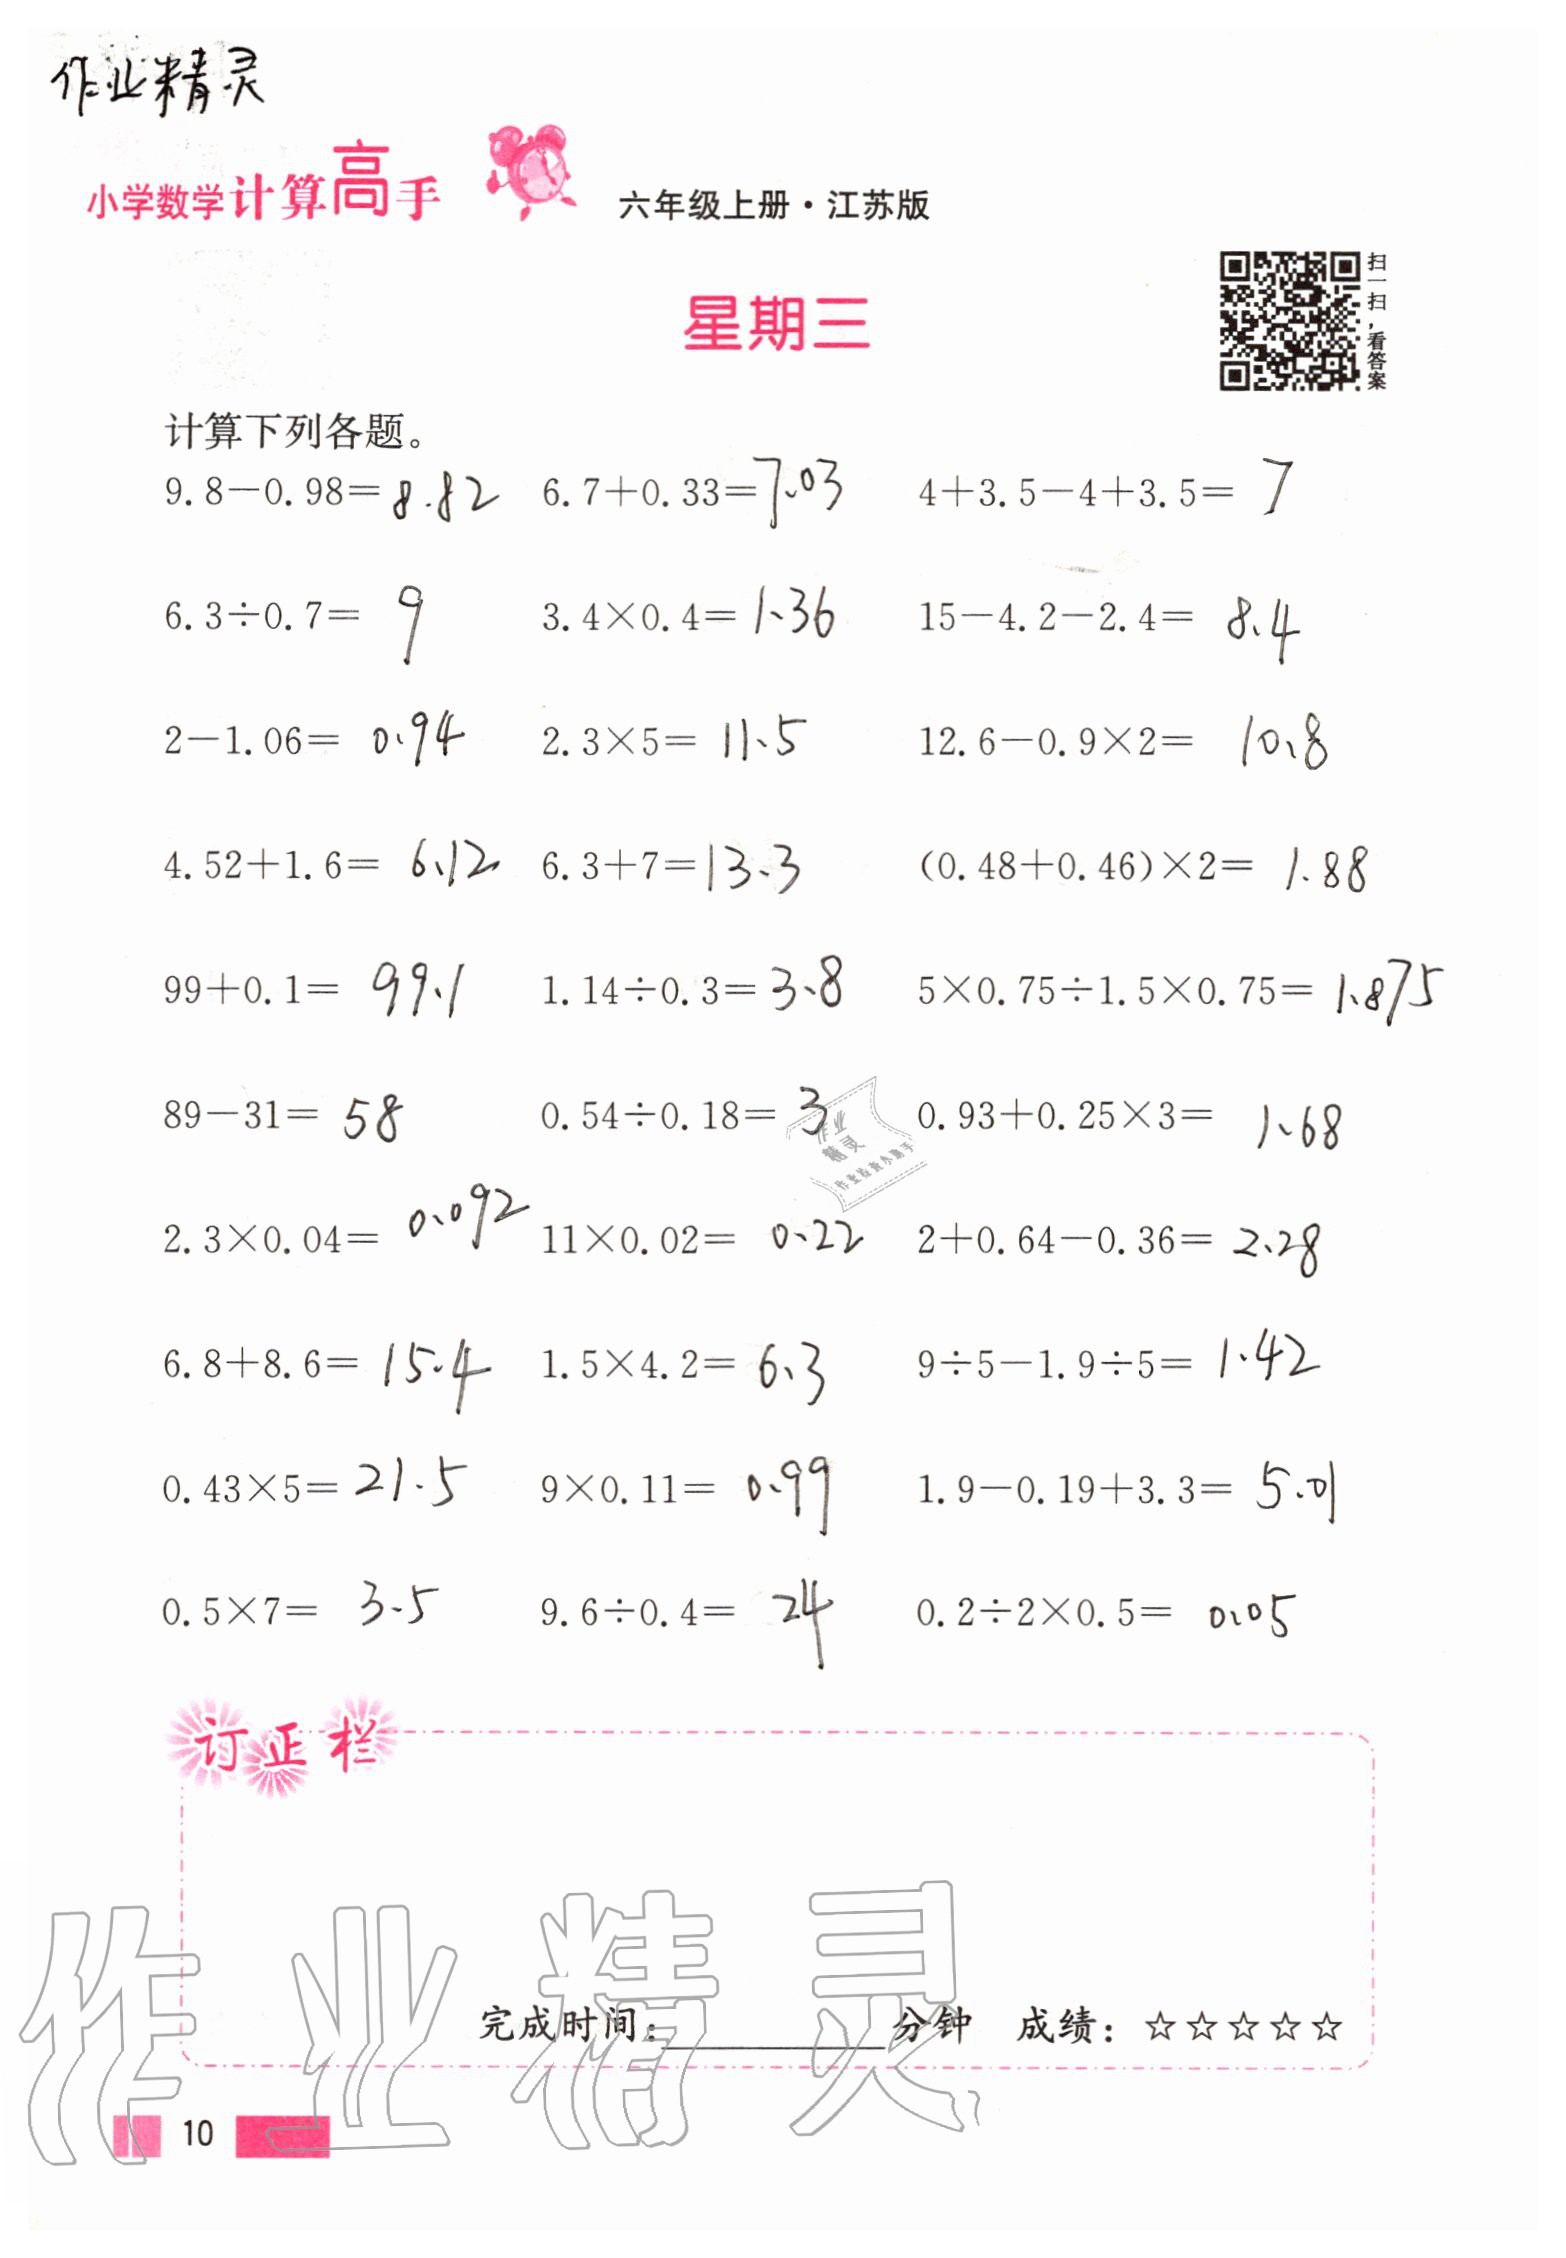 作业精灵
小学数学计算高手 六年级上册·江苏版
扫一扫,看答案
星期三
计算下列各题。
9.8-0.98=8.82 6.7+0.33=7.03 4+3.5-4+3.5=7
6.3÷0.7=9 3.4×0.4=1.36 15-4.2-2.4=8.4
2-1.06=0.94 2.3×5=11.5 12.6-0.9×2=10.8
4.52+1.6=6.12 6.3+7=13.3 (0.48+0.46)×2=1.88
99+0.1=99.1 1.14÷0.3=3.8 5×0.75÷1.5×0.75=1.875
89-31=58 0.54÷0.18=3 0.93+0.25×3=1.68
作业
精灵
作业检查小助手
2.3×0.04=0.092 11×0.02=0.22 2+0.64-0.36=2.28
6.8+8.6=15.4 1.5×4.2=6.3 9÷5-1.9÷5=1.42
0.43×5=21.5 9×0.11=0.99 1.9-0.19+3.3=5.01
0.5×7=3.5 9.6÷0.4=24 0.2÷2×0.5=0.05
订正栏
作业精灵
完成时间:__________分钟 成绩:☆☆☆☆☆
10